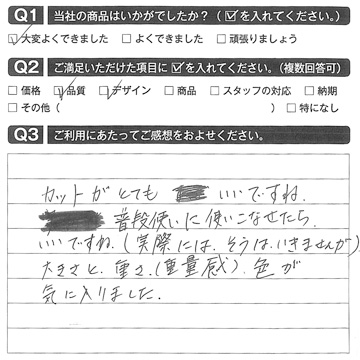 Q1 当社の商品はいかがでしたか？（☑を入れてください。）
☑大変よくできました □よくできました □頑張りましょう
Q2 ご満足いただけた項目に☑を入れてください。（複数回答可）
□価格 ☑品質 ☑デザイン □商品 □スタッフの対応 □納期
□その他（ ）□特になし
Q3 ご利用にあたってご感想をおよせください。
カットがとても いいですね。
普段使いに使いこなせたら、
いいですね。（実際には、そうは、いきませんが）
大きさと、重さ、（重量感）、色が
気に入りました。